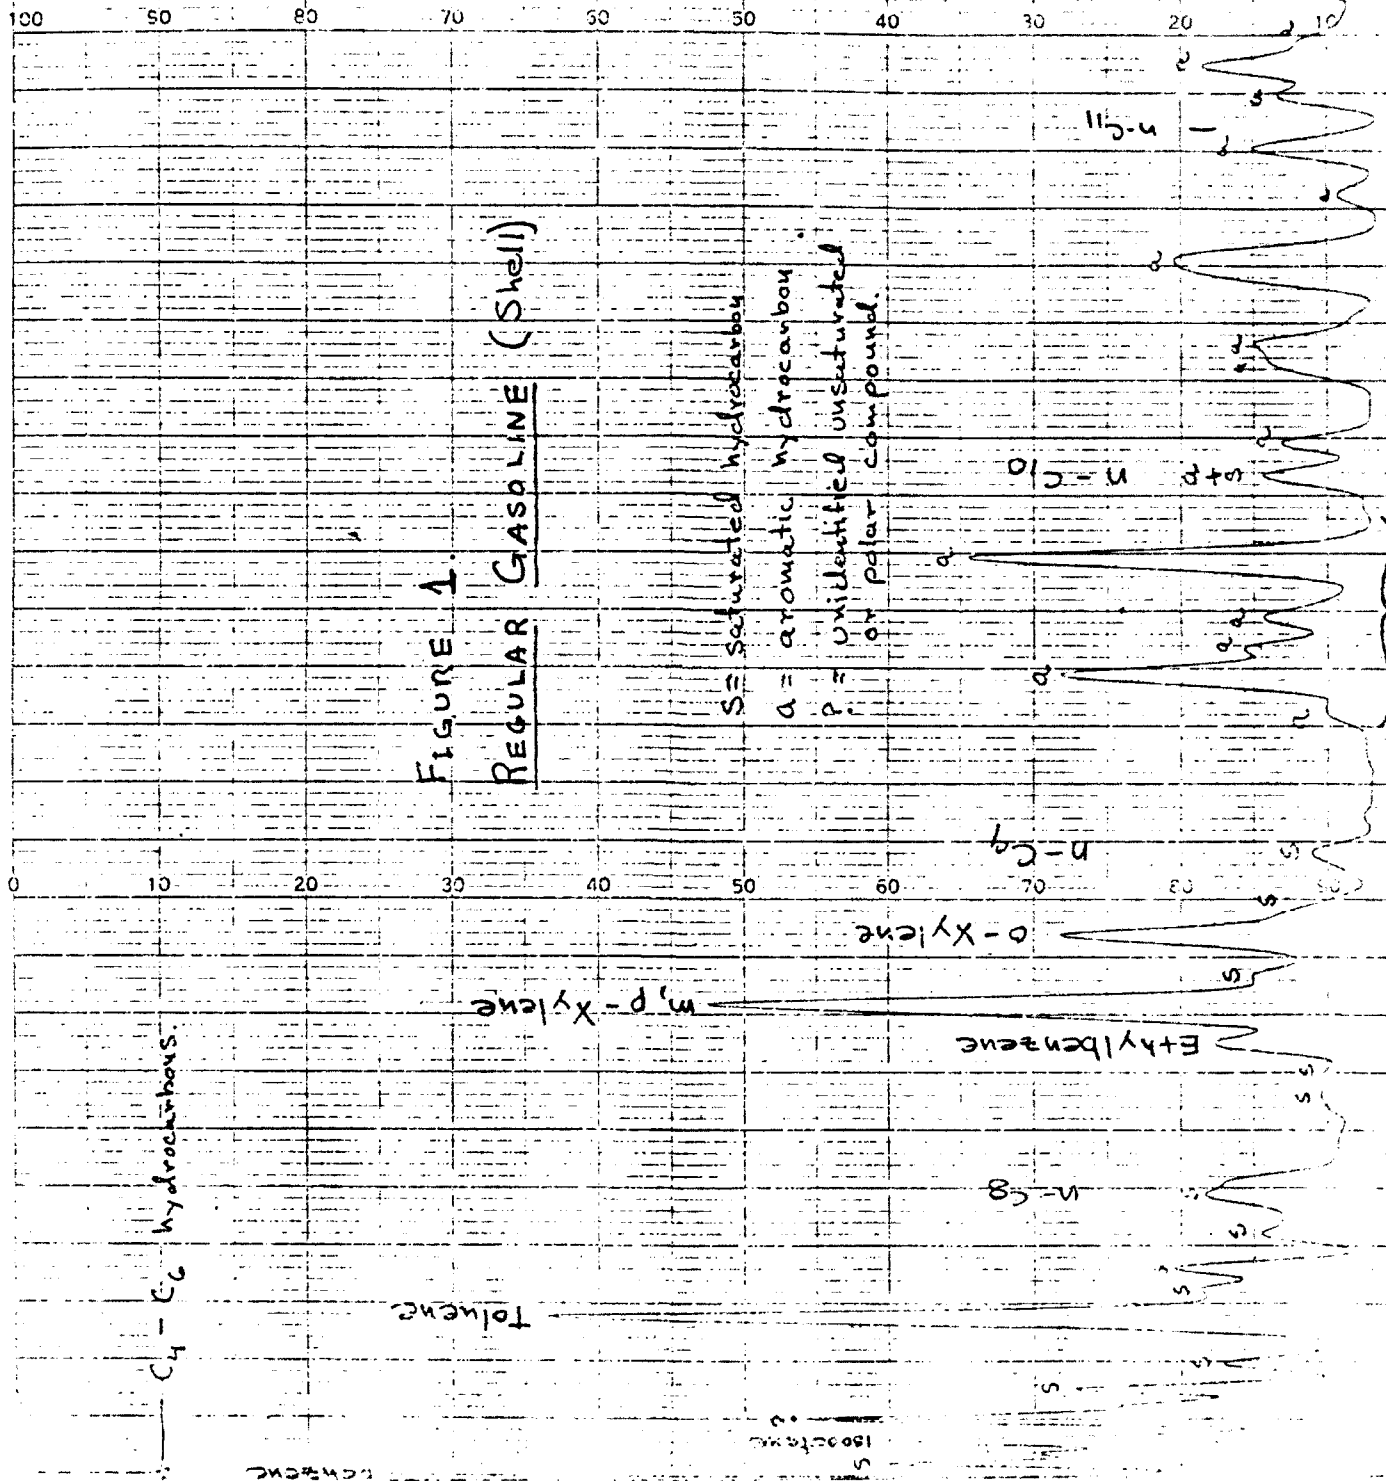 100 90 80 70 60 50 40 30 20 10
FIGURE 1.
REGULAR GASOLINE (Shell)
S = saturated hydrocarbon
a = aromatic hydrocarbon
P = unidentified unsaturated
or polar compound.
n-C11
a
s
a
a
a
a
n-C10
s+a
a
a
a
a
a
n-C9
s
0 10 20 30 40 50 60 70 80 90
s
o-Xylene
s
m,p-Xylene
Ethylbenzene
s
s
n-C8
s
s
s
Toluene
s
s
C4 - C6 hydrocarbons.
isooctane
s